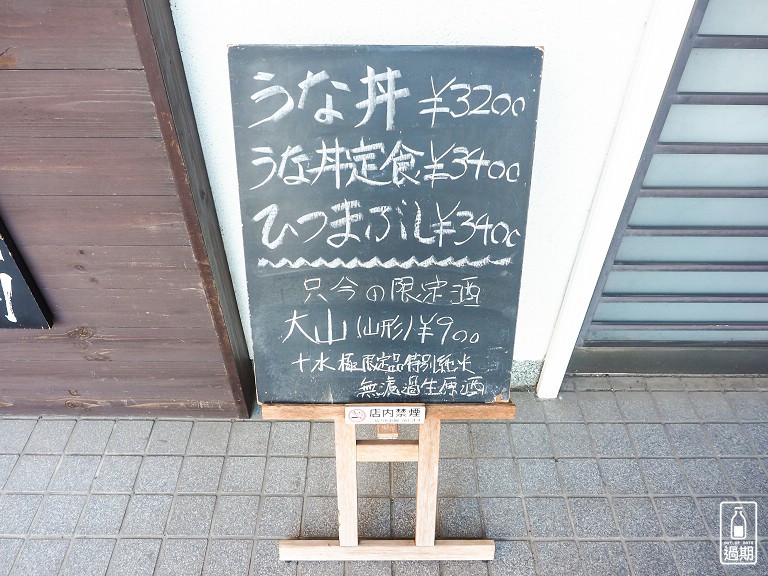 うな丼 ¥3200
うな丼定食¥3400
ひつまぶし¥3400
只今の限定酒
大山(山形)¥900
十水 極 限定品特別純米
無濾過生原酒
店内禁煙
OUT OF DATE
過期